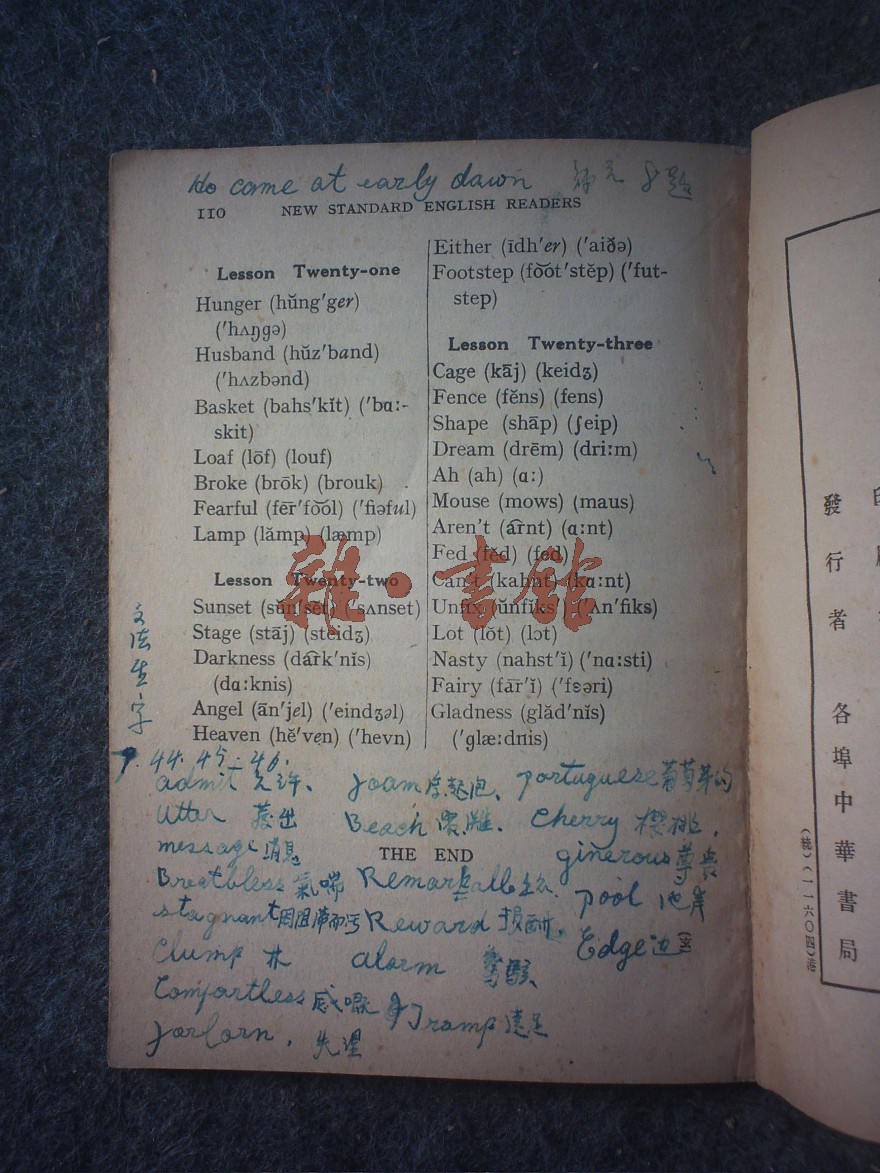 He come at early dawn
110 NEW STANDARD ENGLISH READERS
Lesson Twenty-one
Hunger (hŭng′ger)
(′hʌŋgə)
Husband (hŭz′band)
(′hʌzbənd)
Basket (bahs′kĭt) (′bɑː-
skit)
Loaf (lōf) (louf)
Broke (brōk) (brouk)
Fearful (fēr′fo͝ol) (′fiəful)
Lamp (lămp) (læmp)
Lesson Twenty-two
Sunset (sŭn′sĕt) (′sʌnset)
Stage (stāj) (steidʒ)
Darkness (dârk′nĭs)
(dɑːknis)
Angel (ān′jel) (′eindʒəl)
Heaven (hĕ′ven) (′hevn)
Either (īdh′er) (′aiðə)
Footstep (fo͝ot′stĕp) (′fut-
step)
Lesson Twenty-three
Cage (kāj) (keidʒ)
Fence (fĕns) (fens)
Shape (shāp) (ʃeip)
Dream (drēm) (driːm)
Ah (ah) (ɑː)
Mouse (mows) (maus)
Aren't (ârnt) (ɑːnt)
Fed (fĕd) (fed)
Can't (kahnt) (kɑːnt)
Unfix (ŭnfĭks) (′ʌn′fiks)
Lot (lŏt) (lɔt)
Nasty (nahst′ĭ) (′nɑːsti)
Fairy (fār′ĭ) (′fɛəri)
Gladness (glăd′nĭs)
(′glæːdnis)
雜·書館
文法生字
P. 44. 45 - 46.
admit 允許、 foam 泡、 portuguese 葡萄牙的
Utter 發出 Beach Cherry 櫻桃,
message 消息 THE END ginerous
Breathless 氣喘 Remarkable pool 池
stagnant Reward 報酬, Edge 边
Clump 林 alarm 驚駭、
Comfortless Tramp 遠足
forlorn, 失望
發行者 各埠中華書局
(統)(一一六〇四)港